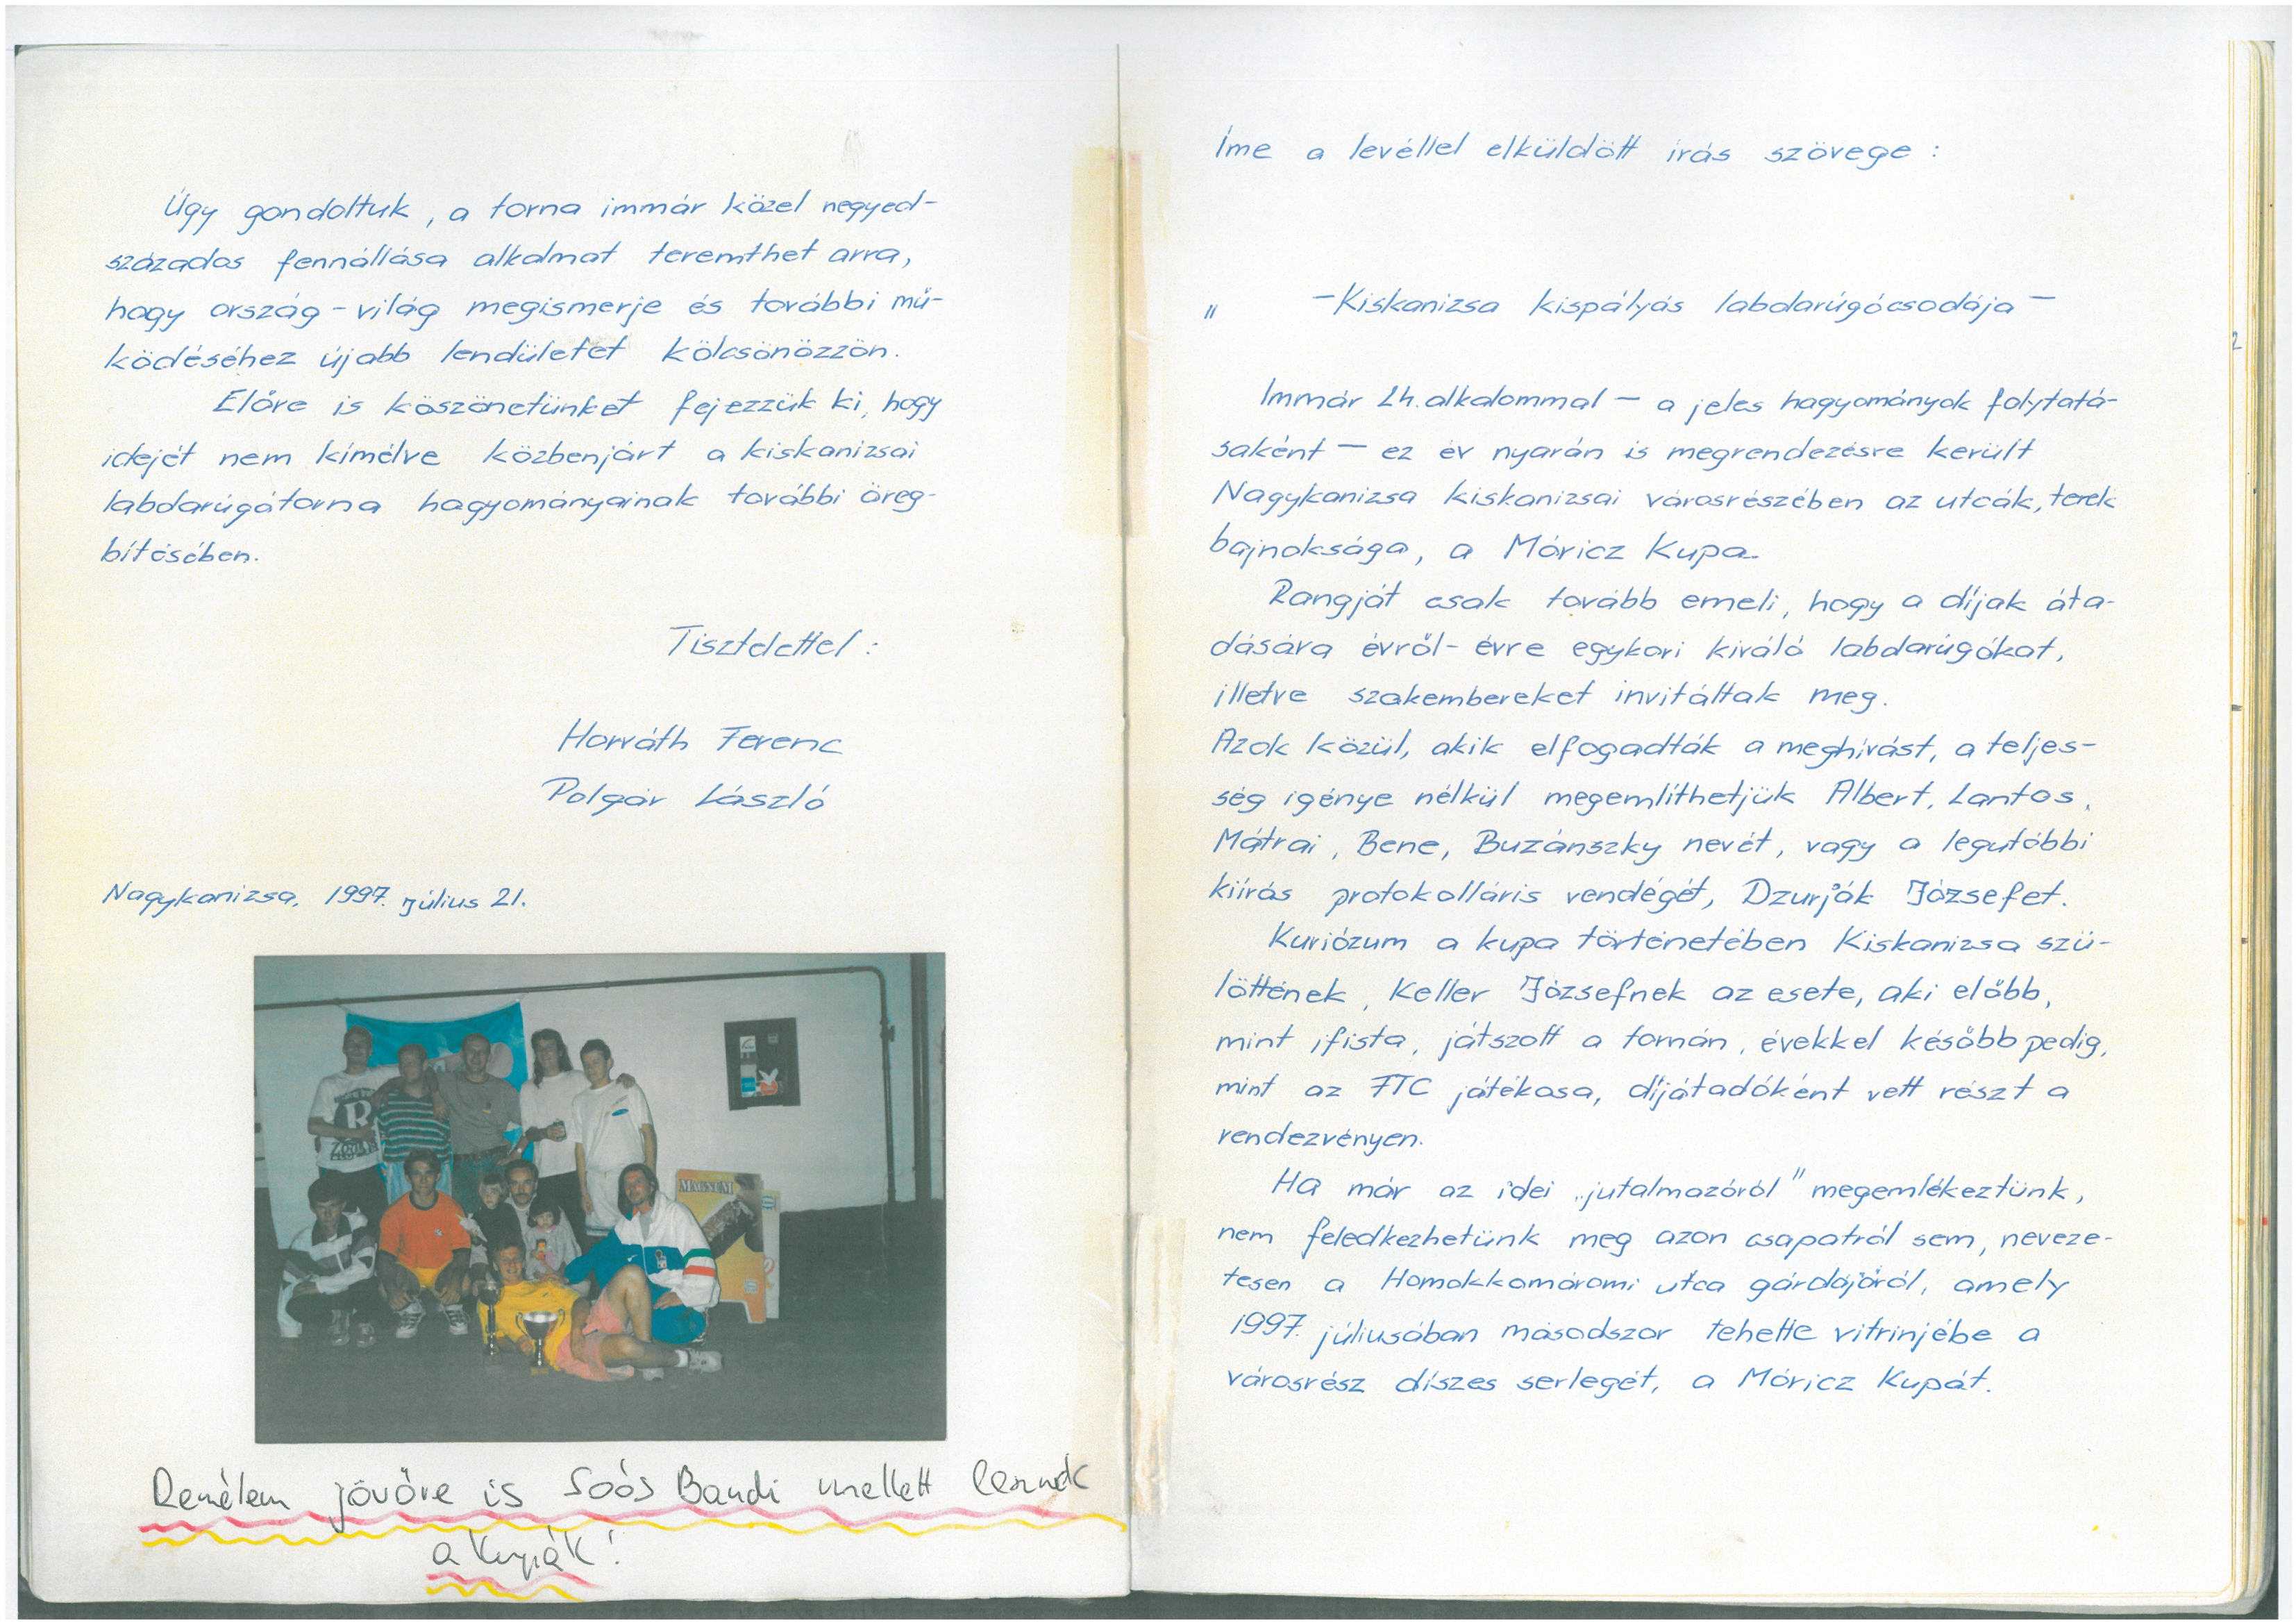 Úgy gondoltuk, a torna immár közel negyed-
százados fennállása alkalmat teremthet arra,
hogy ország-világ megismerje és további mű-
ködéséhez újabb lendületet kölcsönözzön.
Előre is köszönetünket fejezzük ki, hogy
idejét nem kímélve közbenjárt a kiskanizsai
labdarúgótorna hagyományainak további öreg-
bítésében.
Tisztelettel:
Horváth Ferenc
Polgár László
Nagykanizsa, 1997. július 21.
MAGNUM
Remélem jövőre is Soós Bandi mellett lesznek
a kupák!
Íme a levéllel elküldött írás szövege:
" -Kiskanizsa kispályás labdarúgócsodája-
Immár 24. alkalommal - a jeles hagyományok folytatá-
saként - ez év nyarán is megrendezésre került
Nagykanizsa kiskanizsai városrészében az utcák, terek
bajnoksága, a Móricz Kupa.
Rangját csak tovább emeli, hogy a díjak áta-
dására évről-évre egykori kiváló labdarúgókat,
illetve szakembereket invitáltak meg.
Azok közül, akik elfogadták a meghívást, a teljes-
ség igénye nélkül megemlíthetjük Albert, Lantos,
Mátrai, Bene, Buzánszky nevét, vagy a legutóbbi
kiírás protokolláris vendégét, Dzurják Józsefet.
Kuriózum a kupa történetében Kiskanizsa szü-
löttének, Keller Józsefnek az esete, aki előbb,
mint ifista, játszott a tornán, évekkel később pedig,
mint az FTC játékosa, díjátadóként vett részt a
rendezvényen.
Ha már az idei „jutalmazóról" megemlékeztünk,
nem feledkezhetünk meg azon csapatról sem, neveze-
tesen a Homokkomáromi utca gárdájáról, amely
1997. júliusában másodszor tehette vitrinjébe a
városrész díszes serlegét, a Móricz Kupát.